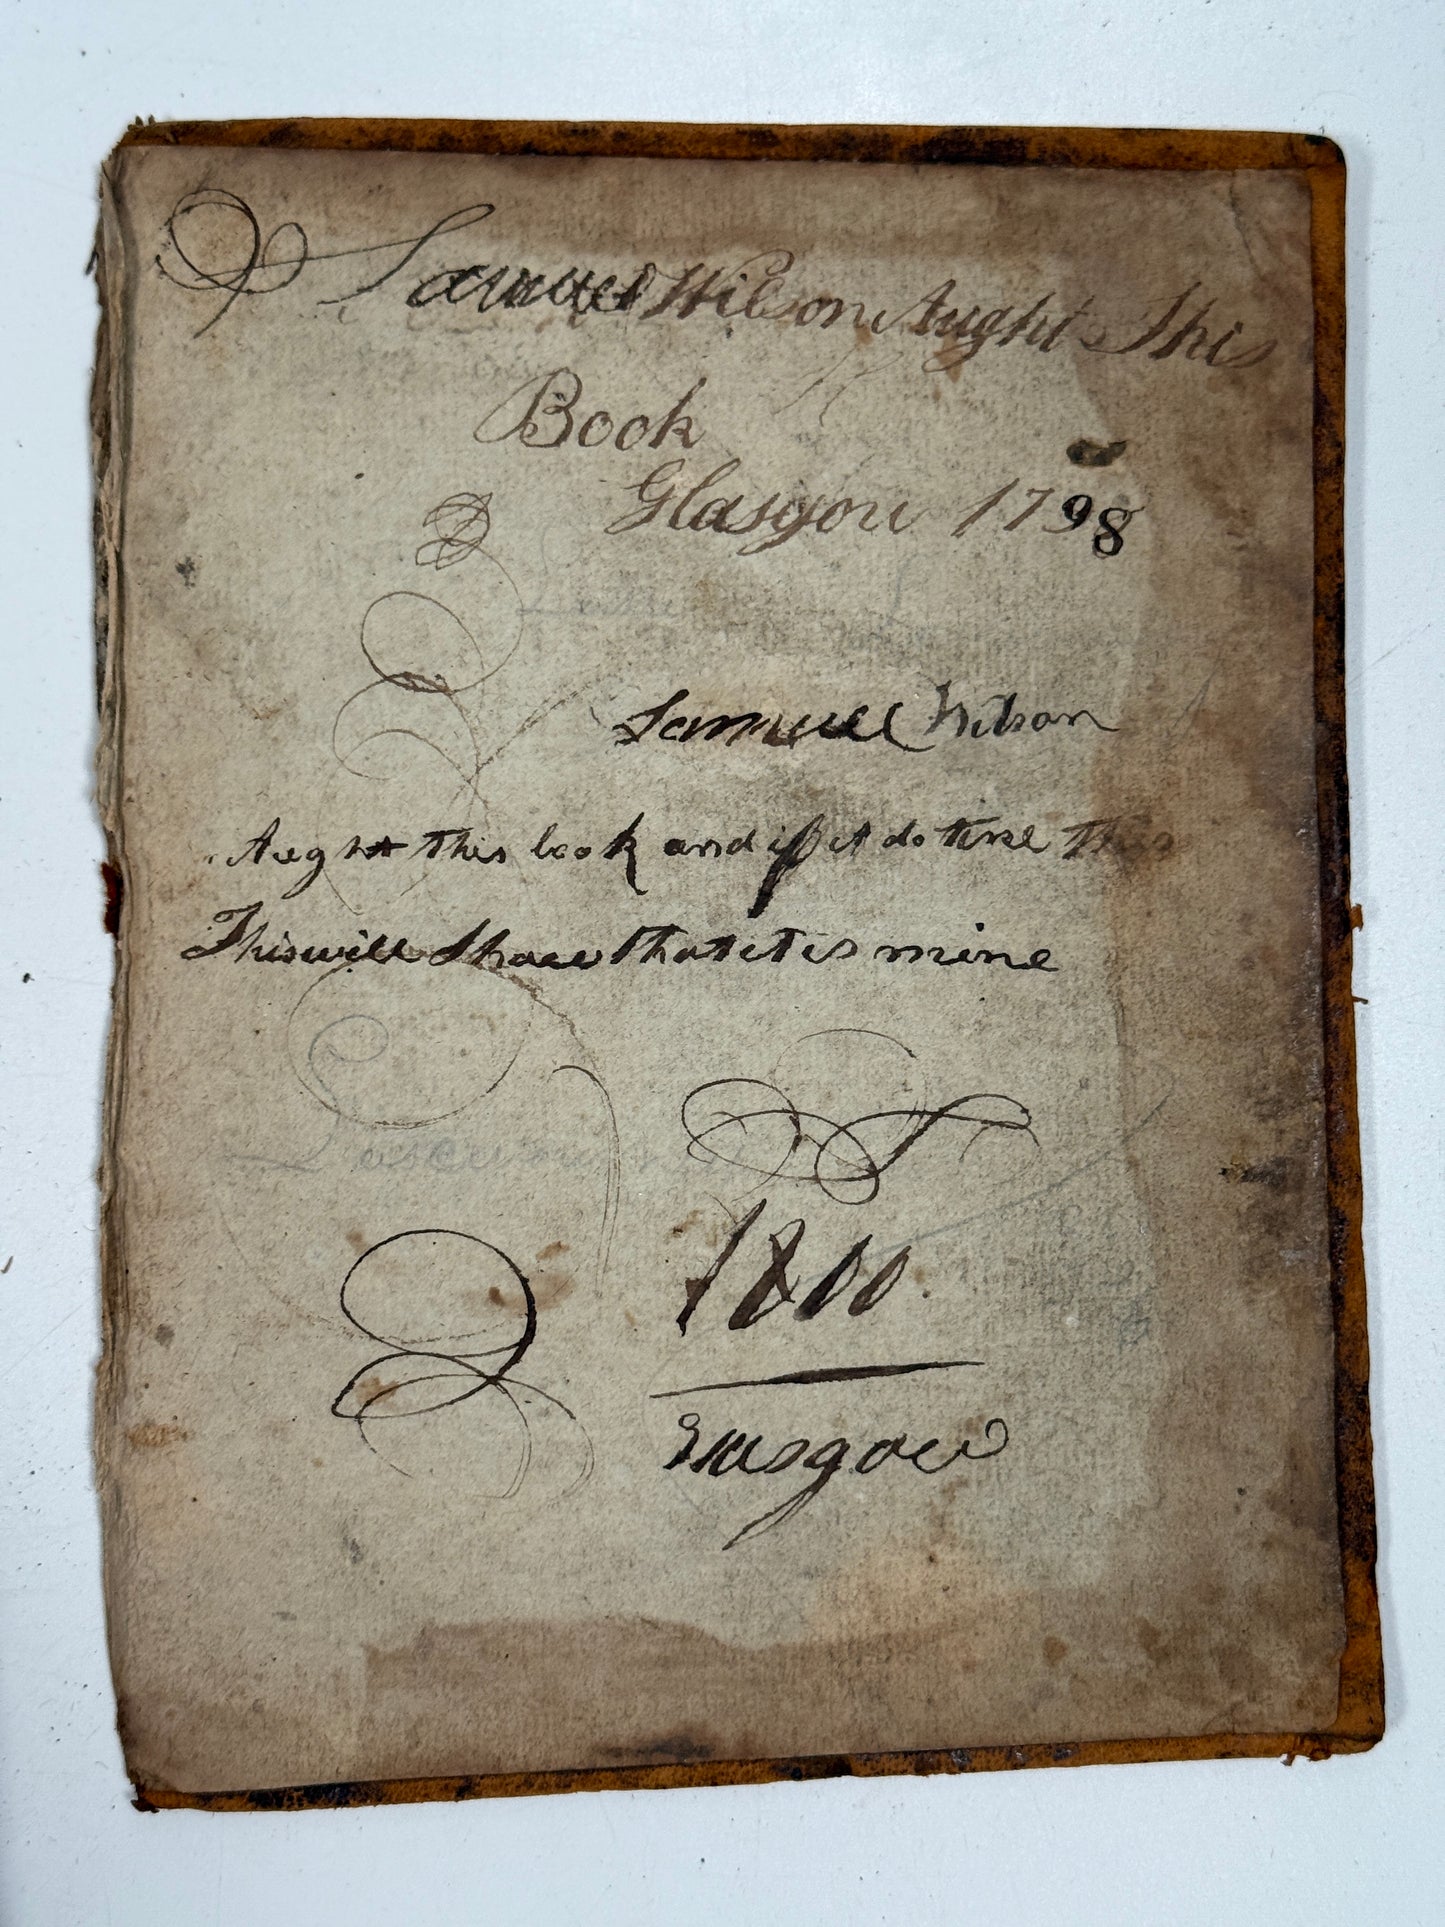 Samuel Wilson Aught This
Book
Glasgow 1798
Samuel Wilson
Aught this book and if it do tine
This will Shaw that it is mine
1800
Glasgow